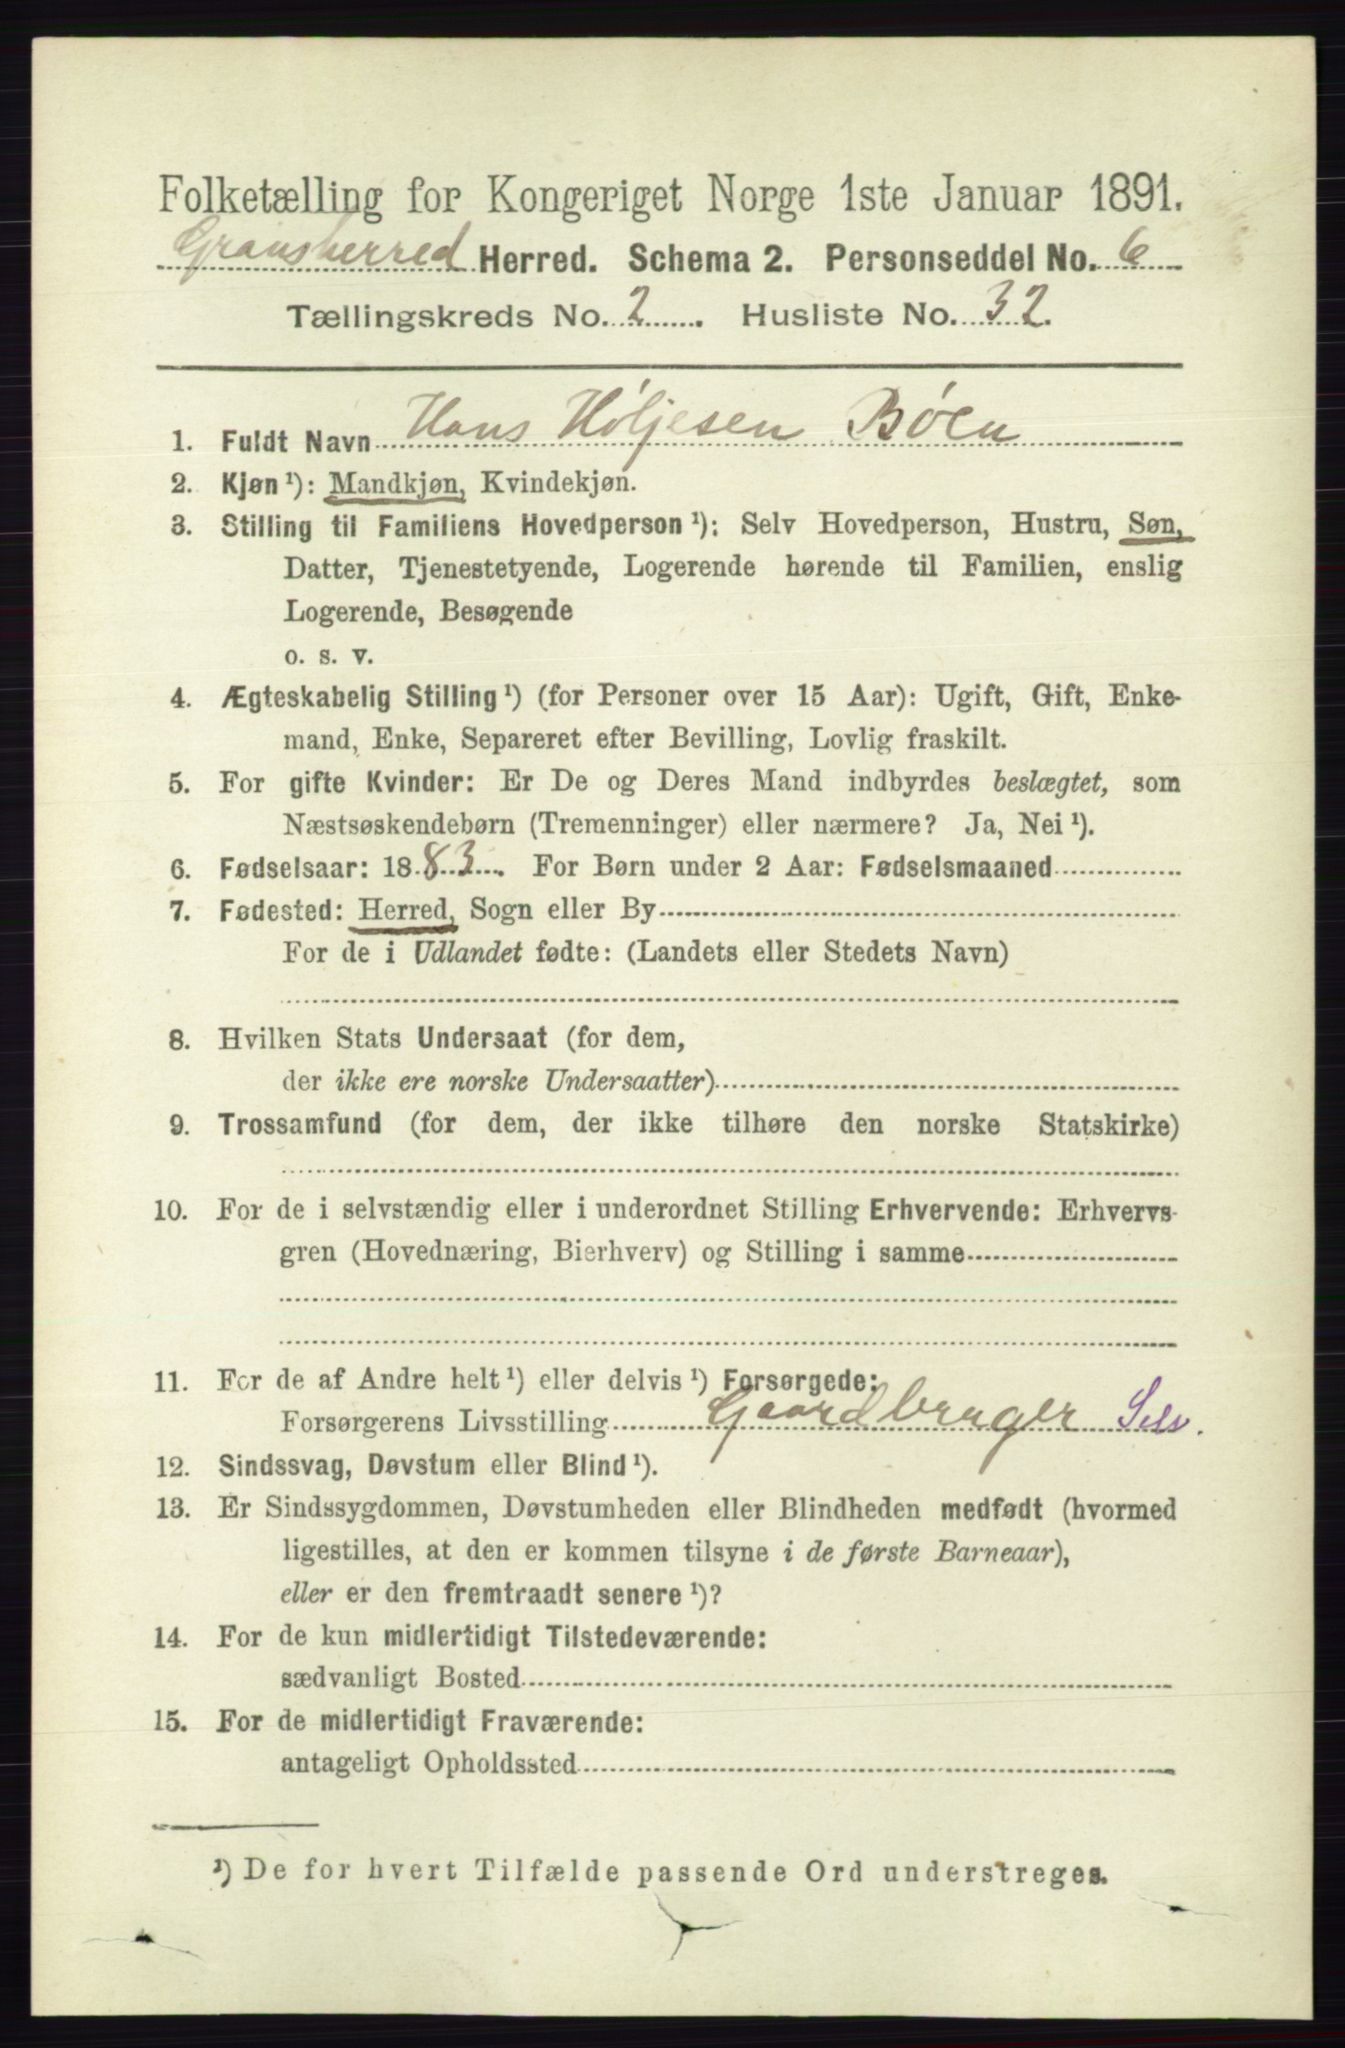 Folketælling for Kongeriget Norge 1ste Januar 1891.
Gransherred Herred. Schema 2. Personseddel No. 6
Tællingskreds No. 2. Husliste No. 32.
1. Fuldt Navn Hans Høljesen Bøen
2. Kjøn¹): Mandkjøn, Kvindekjøn.
3. Stilling til Familiens Hovedperson¹): Selv Hovedperson, Hustru, Søn,
Datter, Tjenestetyende, Logerende hørende til Familien, enslig
Logerende, Besøgende
o. s. v.
4. Ægteskabelig Stilling¹) (for Personer over 15 Aar): Ugift, Gift, Enke-
mand, Enke, Separeret efter Bevilling, Lovlig fraskilt.
5. For gifte Kvinder: Er De og Deres Mand indbyrdes beslægtet, som
Næstsøskendebørn (Tremenninger) eller nærmere? Ja, Nei¹).
6. Fødselsaar: 1883. For Børn under 2 Aar: Fødselsmaaned
7. Fødested: Herred, Sogn eller By
For de i Udlandet fødte: (Landets eller Stedets Navn)
8. Hvilken Stats Undersaat (for dem,
der ikke ere norske Undersaatter)
9. Trossamfund (for dem, der ikke tilhøre den norske Statskirke)
10. For de i selvstændig eller i underordnet Stilling Erhvervende: Erhvervs-
gren (Hovednæring, Bierhverv) og Stilling i samme
11. For de af Andre helt¹) eller delvis¹) Forsørgede:
Forsørgerens Livsstilling Gaardbruger Selv.
12. Sindssvag, Døvstum eller Blind¹).
13. Er Sindssygdommen, Døvstumheden eller Blindheden medfødt (hvormed
ligestilles, at den er kommen tilsyne i de første Barneaar),
eller er den fremtraadt senere¹)?
14. For de kun midlertidigt Tilstedeværende:
sædvanligt Bosted
15. For de midlertidigt Fraværende:
antageligt Opholdssted
¹) De for hvert Tilfælde passende Ord understreges.